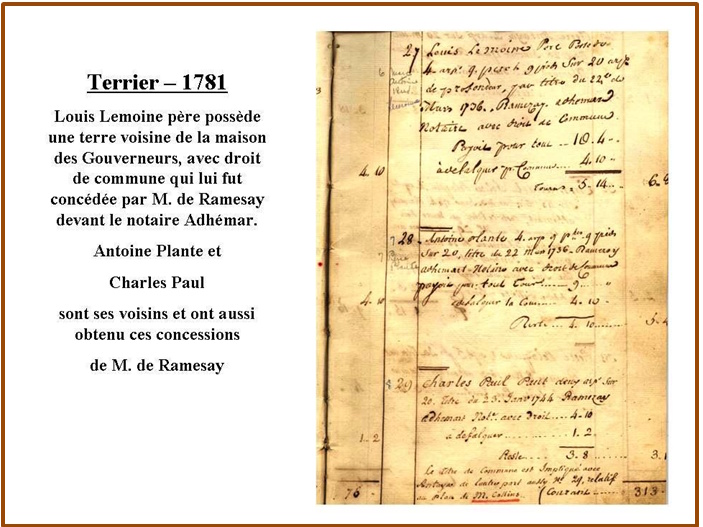 Terrier – 1781
Louis Lemoine père possède
une terre voisine de la maison
des Gouverneurs, avec droit
de commune qui lui fut
concédée par M. de Ramesay
devant le notaire Adhémar.
Antoine Plante et
Charles Paul
sont ses voisins et ont aussi
obtenu ces concessions
de M. de Ramesay
27 Louis Lemoine Pere
4 arp. 9 perch 9 pieds Sur 20 arp.
de profondeur, par titre du 22e de
Mars 1736. Ramezay, adhemard
Notaire avec droit de Commune
Payoit pour tout 10.4
4.10 à defalquer 4.10
5.14
28 Antoine Plante 4. arp 9 9 pieds
Sur 20, titre du 22 Mars 1736. Ramezay
adhemart Notaire avec droit de
payoit pour tout 9
4.10 defalquer la 4.10
Reste 4.10
29 Charles Sur
20. titre du 23. Janv 1744 Ramezay
adhemart Not. avec droit 4.10
1.2 a defalquer 1.2
Reste 3.8
Le titre de Commune est Impliqué avec
aussy No. 29. relatif
76 au plan de M. Collins (Courant 313